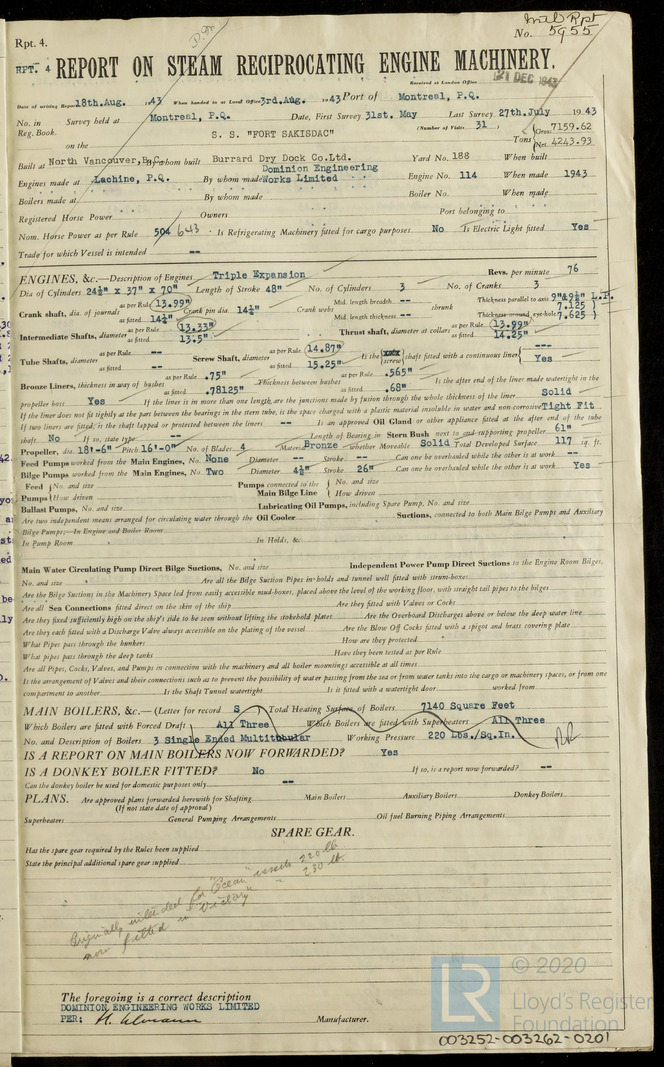 Rpt. 4.
No. 5955
RPT. 4 REPORT ON STEAM RECIPROCATING ENGINE MACHINERY.
Received at London Office 21 DEC 1943
Date of writing Report 18th.Aug. 1943 When handed in at Local Office 3rd.Aug. 1943 Port of Montreal, P.Q.
No. in Reg. Book. Survey held at Montreal, P.Q. Date, First Survey 31st. May Last Survey 27th.July 1943
(Number of Visits 31 )
on the S. S. "FORT SAKISDAC" Tons { Gross 7159.62 Net 4243.93
Built at North Vancouver,B.C. By whom built Burrard Dry Dock Co.Ltd. Yard No. 188 When built
Engines made at Lachine, P.Q. By whom made Dominion Engineering Works Limited Engine No. 114 When made 1943
Boilers made at By whom made Boiler No. When made
Registered Horse Power Owners Port belonging to
Nom. Horse Power as per Rule 504 643 Is Refrigerating Machinery fitted for cargo purposes No Is Electric Light fitted Yes
Trade for which Vessel is intended --
ENGINES, &c.—Description of Engines Triple Expansion Revs. per minute 76
Dia of Cylinders 24½" x 37" x 70" Length of Stroke 48" No. of Cylinders 3 No. of Cranks 3
Crank shaft, dia. of journals as per Rule 13.99" as fitted 14¼" Crank pin dia. 14¼" Crank webs Mid. length breadth -- Mid. length thickness -- shrunk Thickness parallel to axis 9"&9½" L.P. 7.125 Thickness around eye-hole 7.625
Intermediate Shafts, diameter as per Rule 13.33" as fitted 13.5" Thrust shaft, diameter at collars as per Rule 13.99" as fitted 14.25"
Tube Shafts, diameter as per Rule -- as fitted -- Screw Shaft, diameter as per Rule 14.87" as fitted 15.25" Is the {screw} shaft fitted with a continuous liner { --- Yes
Bronze Liners, thickness in way of bushes as per Rule .75" as fitted .78125" Thickness between bushes as per Rule .565" as fitted .68" Is the after end of the liner made watertight in the
propeller boss Yes If the liner is in more than one length are the junctions made by fusion through the whole thickness of the liner Solid
If the liner does not fit tightly at the part between the bearings in the stern tube, is the space charged with a plastic material insoluble in water and non-corrosive Tight Fit
If two liners are fitted, is the shaft lapped or protected between the liners -- Is an approved Oil Gland or other appliance fitted at the after end of the tube
shaft No If so, state type -- Length of Bearing in Stern Bush next to and supporting propeller 61"
Propeller, dia. 18'-6" Pitch 16'-0" No. of Blades 4 Material Bronze whether Moveable Solid Total Developed Surface 117 sq. ft.
Feed Pumps worked from the Main Engines, No. None Diameter -- Stroke -- Can one be overhauled while the other is at work --
Bilge Pumps worked from the Main Engines, No. Two Diameter 4½" Stroke 26" Can one be overhauled while the other is at work Yes
Feed Pumps { No. and size How driven Pumps connected to the Main Bilge Line { No. and size How driven
Ballast Pumps, No. and size Lubricating Oil Pumps, including Spare Pump, No. and size
Are two independent means arranged for circulating water through the Oil Cooler Suctions, connected to both Main Bilge Pumps and Auxiliary
Bilge Pumps;—In Engine and Boiler Room
In Pump Room In Holds, &c.
Main Water Circulating Pump Direct Bilge Suctions, No. and size Independent Power Pump Direct Suctions to the Engine Room Bilges,
No. and size Are all the Bilge Suction Pipes in holds and tunnel well fitted with strum-boxes
Are the Bilge Suctions in the Machinery Space led from easily accessible mud-boxes, placed above the level of the working floor, with straight tail pipes to the bilges
Are all Sea Connections fitted direct on the skin of the ship Are they fitted with Valves or Cocks
Are they fixed sufficiently high on the ship's side to be seen without lifting the stokehold plates Are the Overboard Discharges above or below the deep water line
Are they each fitted with a Discharge Valve always accessible on the plating of the vessel Are the Blow Off Cocks fitted with a spigot and brass covering plate
What Pipes pass through the bunkers How are they protected
What pipes pass through the deep tanks Have they been tested as per Rule
Are all Pipes, Cocks, Valves, and Pumps in connection with the machinery and all boiler mountings accessible at all times
Is the arrangement of Valves and their connections such as to prevent the possibility of water passing from the sea or from water tanks into the cargo or machinery spaces, or from one
compartment to another Is the Shaft Tunnel watertight Is it fitted with a watertight door worked from
MAIN BOILERS, &c.—(Letter for record S Total Heating Surface of Boilers 7140 Square Feet
Which Boilers are fitted with Forced Draft All Three Which Boilers are fitted with Superheaters All Three
No. and Description of Boilers 3 Single Ended Multitubular Working Pressure 220 Lbs./Sq.In.
IS A REPORT ON MAIN BOILERS NOW FORWARDED? Yes
IS A DONKEY BOILER FITTED? No If so, is a report now forwarded? --
Can the donkey boiler be used for domestic purposes only --
PLANS. Are approved plans forwarded herewith for Shafting Main Boilers Auxiliary Boilers Donkey Boilers
(If not state date of approval)
Superheaters General Pumping Arrangements Oil fuel Burning Piping Arrangements
SPARE GEAR.
Has the spare gear required by the Rules been supplied
State the principal additional spare gear supplied
Originally intended for "Ocean" vessels 220 lb.
now fitted in "Victory" " 230 lb.
The foregoing is a correct description
DOMINION ENGINEERING WORKS LIMITED
PER: Manufacturer.
LR © 2020
Lloyd's Register
Foundation
003252-003262-0201